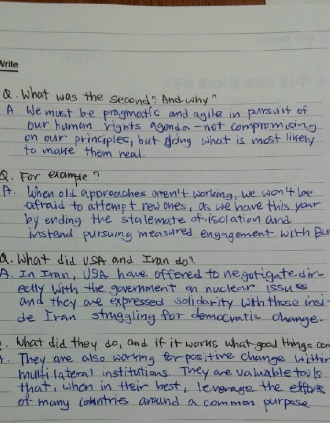 Write
Q. What was the second? And why?
A. We must be pragmatic and agile in pursuit of
our human rights agenda - not compromising
on our principles, but doing what is most likely
to make them real.
Q. For example?
A. When old approaches aren't working, we won't be
afraid to attempt new ones, as we have this year
by ending the stalemate of isolation and
instead pursuing measured engagement with Bur
Q. What did USA and Iran do?
A. In Iran, USA have offered to negotigate dir-
ectly with the government on nuclear issues
and they are expressed solidarity with those insi-
de Iran struggling for democratic change.
. What did they do, and if it works what good things com
. They are also working for positive change within
multilateral institutions. They are valuable tools
that, when in their best, leverage the efforts
of many countries around a common purpose